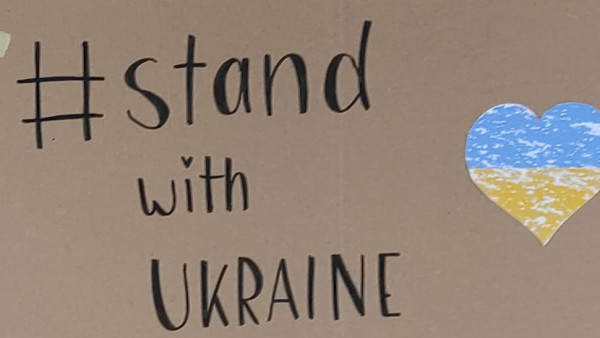 #stand
with
UKRAINE